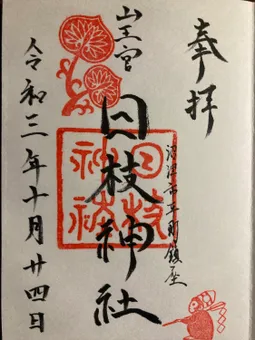 奉拝
沼津市平町鎮座
山王宮
日枝神社
日枝
神社
令和三年十月廿四日